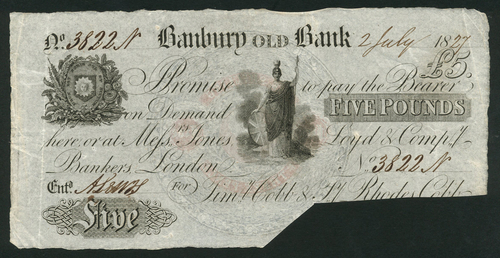 No. 3822 N Banbury OLD Bank 2 July 1827
£5.
I Promise to pay the Bearer
on Demand FIVE POUNDS
here or at Messrs. Jones, Loyd & Compy.
Bankers London No 3822 N
Entd.
For Timy. Cobb & Ty. Rhodes Cobb
Five